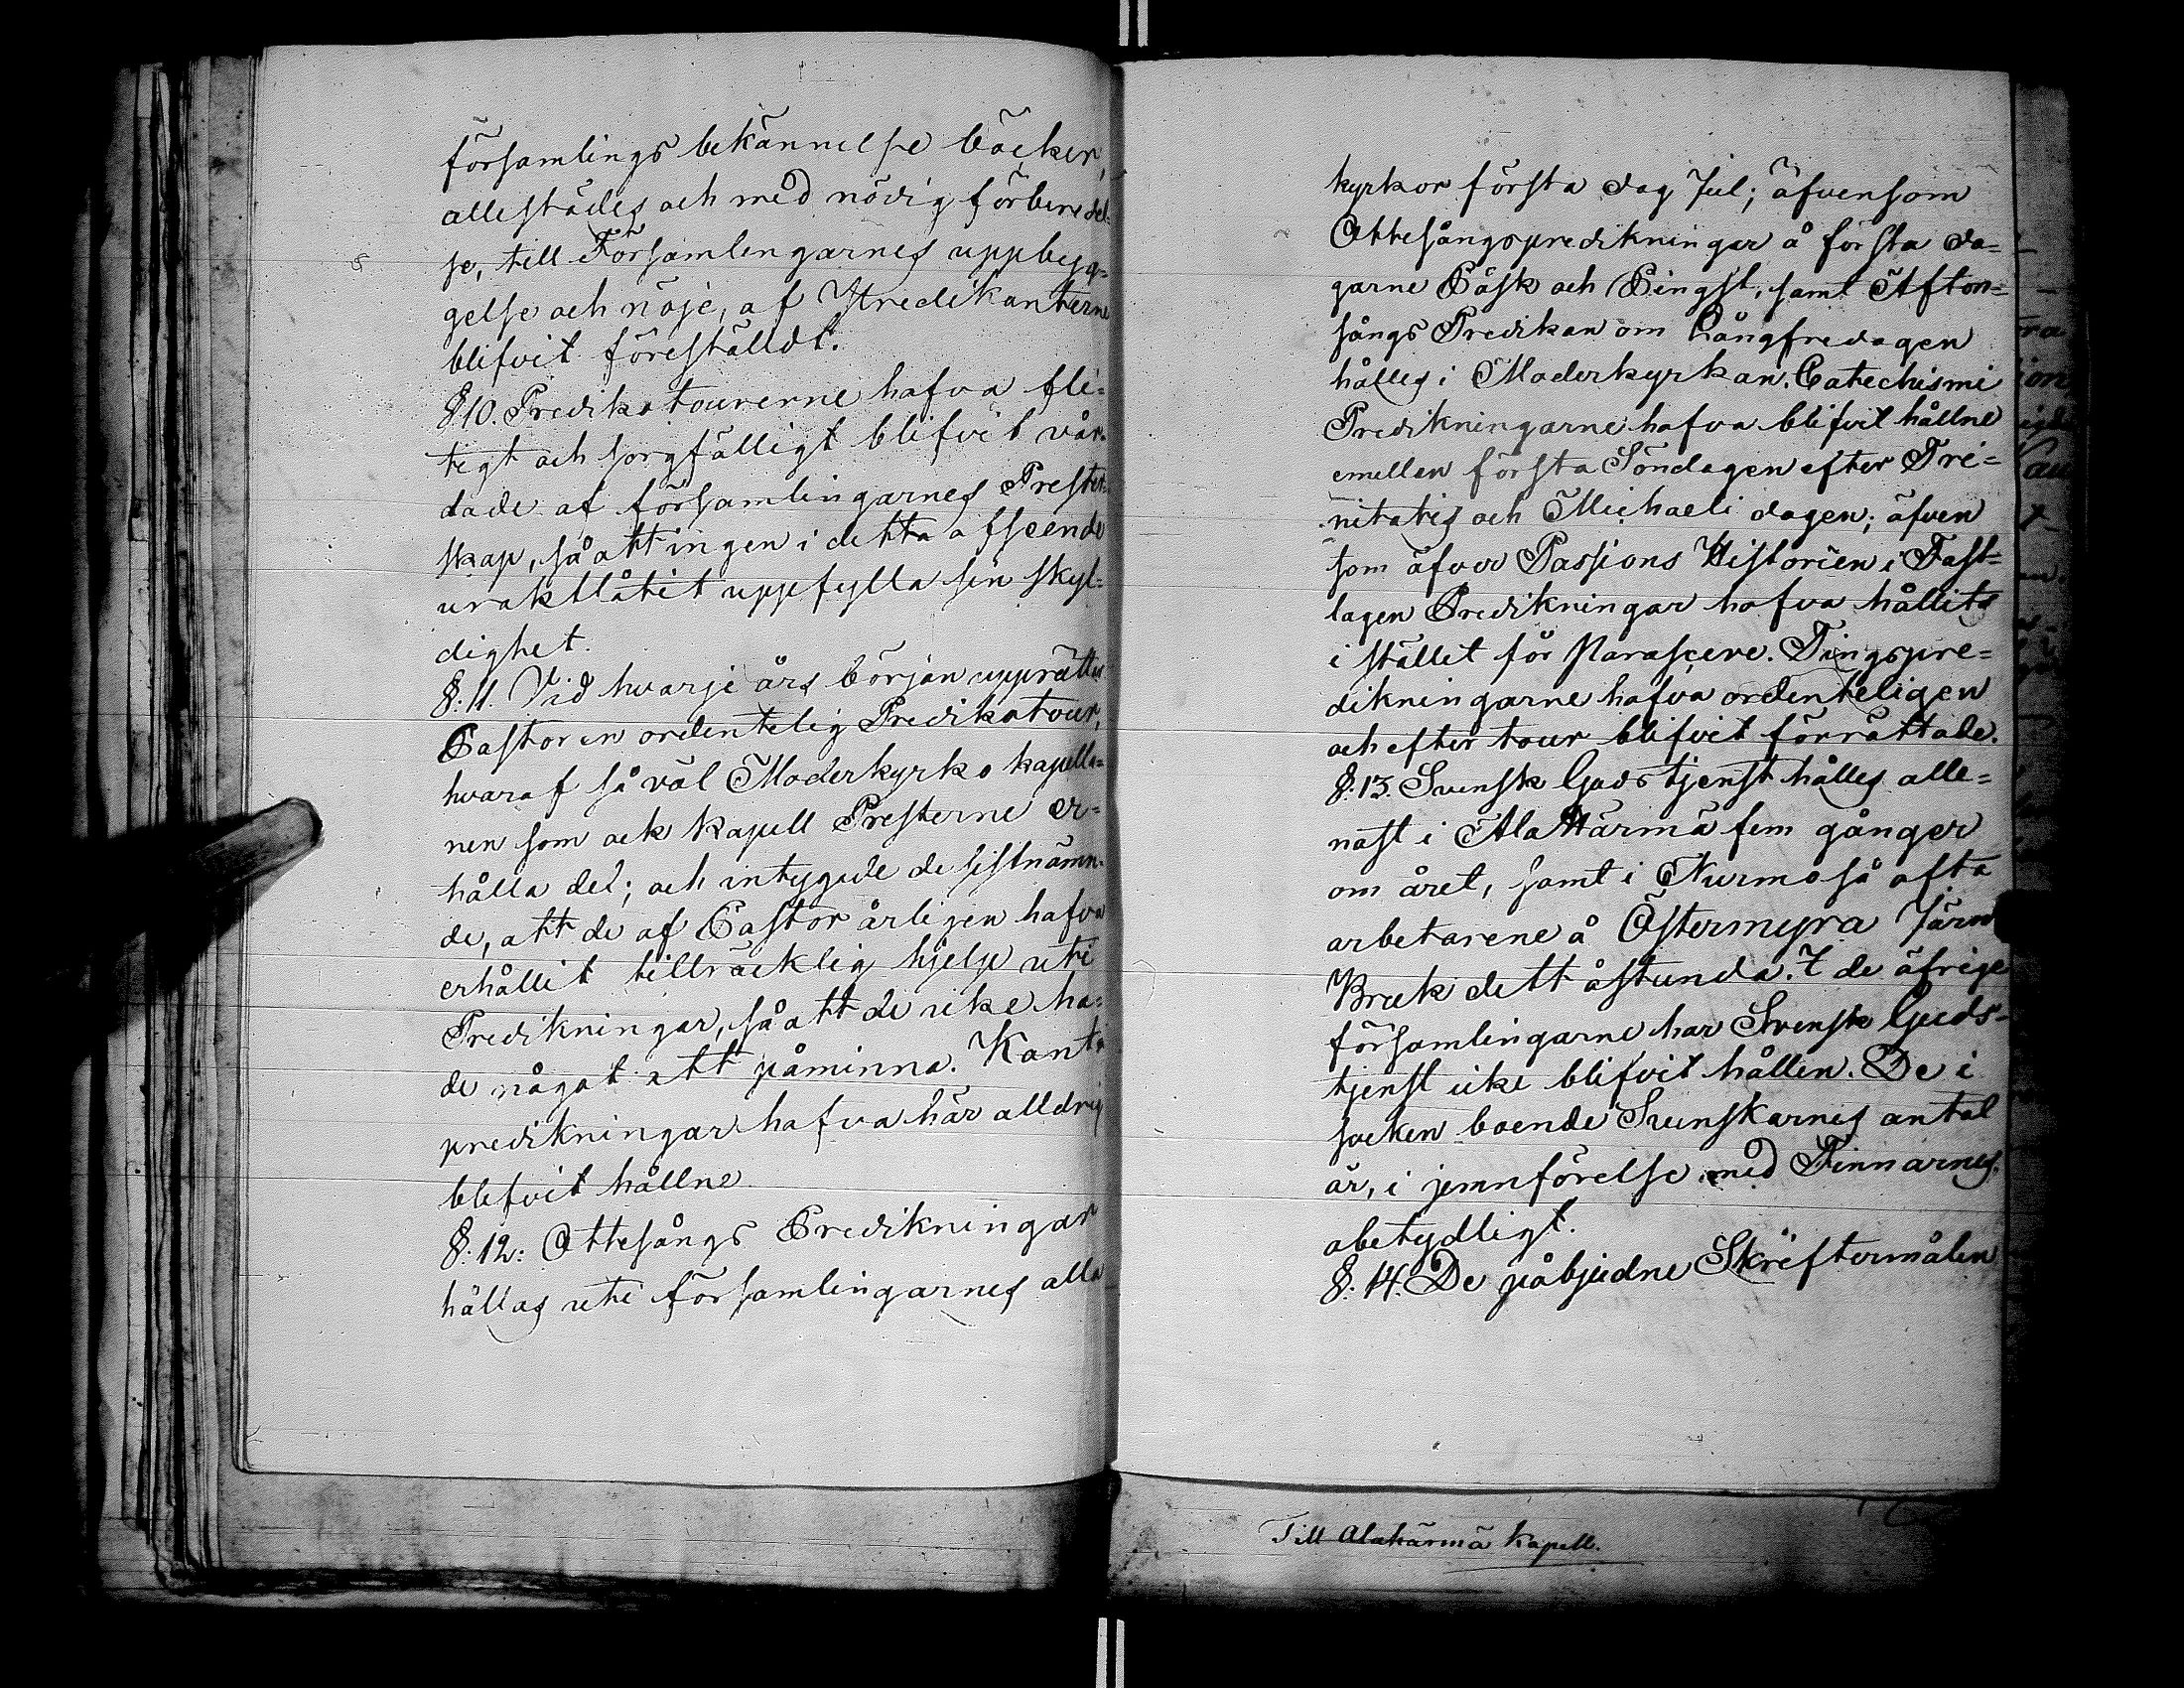 församlings bekännelse böcker,
allestädes och med nödig förberedel-
se, till Församlingarnes uppbyg=
gelse och nöje, af Predikanterne
blifvit föreställdt.
§10. Predikotourerne hafva fli=
tigt och sorgfälligt blifvit vår-
dade af församlingarnes Prester-
skap, så att ingen i detta afseende
uraktlåtit uppfylla sin skyl=
dighet.
§.11. Vid hvarje års början upprättas
Pastor en ordentelig Predikotour,
hvaraf så väl Moderkyrko kapella=
nen som ock kapell Presterne er=
hålla del; och intygade de sistnämn-
de, att de af Pastor årligen hafva
erhållit tillräcklig hjelp uti
Predikningar, så att de icke ha=
de något att påminna. Kant
predikningar hafva här alldrig
blifvit hållne
§.12: Ottesångs Predikningar
hållas uti församlingarnes alla
kyrkor första dag Jul; äfvensom
Ottesångspredikningar å första da=
garne Påsk och Pingst, samt Afton=
sångs Predikan om Långfredagen
hålles i Moderkyrkan. Catechismi
Predikningarne hafva blifvit hållne
emellan första Söndagen efter Tri=
nitatis och Michaeli dagen; äfven
som öfver Passions Historien i Fast=
lagen Predikningar hafva hållits
i stället för Parasceve. Tingspre=
dikningarne hafva ordenteligen
och efter tour blifvit förrättade.
§.13. Svensk Gudstjenst hålles alle=
nast i Ala Härmä fem gånger
om året, samt i Nurmo så ofta
arbetarene å Östermyra Järn
Bruk dett åstunda. I de öfrige
församlingarne har Svensk Guds-
tjenst icke blifvit hållen. De i
socken boende Svenskarnes antal
är, i jemnförelse med Finnarnes,
obetydligt.
§.14. De påbjudne Skriftermålen
Till Alahärmä Kapell.